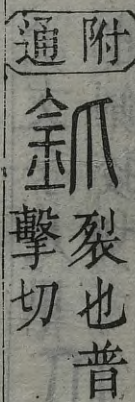 附通
釽裂也普
擊切